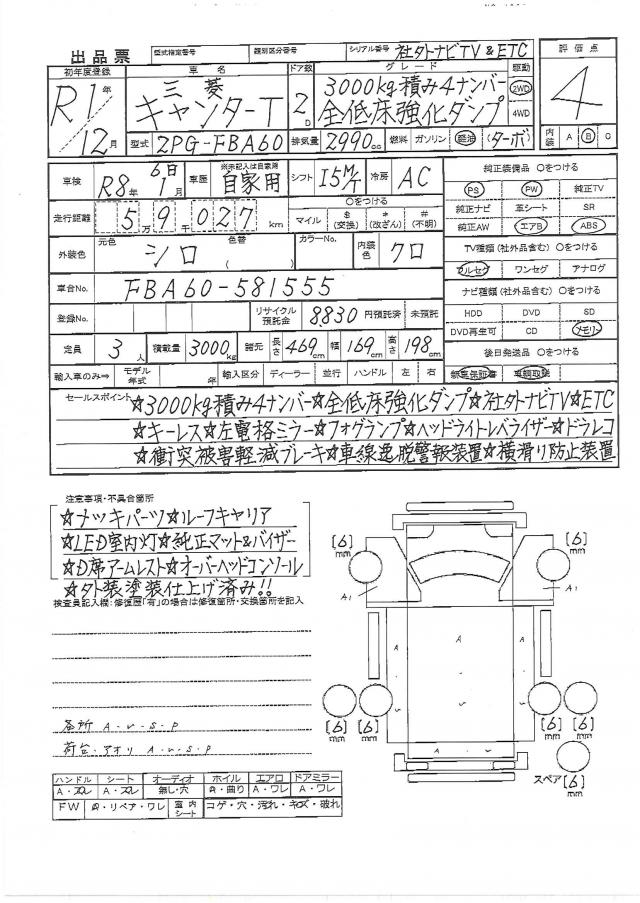 出品票 型式指定番号 類別区分番号 シリアル番号 社外ナビTV&ETC
初年度登録 車名 ドア数 グレード 駆動 評価点
R1年 三菱 3000kg積み4ナンバー 2WD
キャンターT 2D 全低床強化ダンプ 4WD 4
12月 型式 2PG-FBA60 排気量 2990cc 燃料 ガソリン 軽油 (ターボ) 内装 A B C
車検 R8年 6日 1月 車歴 ※未記入は自家用 自家用 シフト I5M/T 冷房 AC 純正装備品 ○をつける
PS PW 純正TV
走行距離 5万9千027km ○をつける マイル $(交換) *(改ざん) #(不明) 純正ナビ 革シート SR
純正AW エアB ABS
外装色 元色 シロ 色替 ( ) カラーNo. 内装色 クロ TV種類(社外品含む) ○をつける
フルセグ ワンセグ アナログ
車台No. FBA60-581555 ナビ種類(社外品含む) ○をつける
登録No. リサイクル預託金 8,830 円預託済 未預託 HDD DVD SD
DVD再生可 CD メモリー
定員 3人 積載量 3000kg 諸元 長さ 469cm 幅 169cm 高さ 198cm 後日発送品 ○をつける
輸入車のみ⇒ モデル年式 年 輸入区分 ディーラー 並行 ハンドル 左 右 新車保証書 車輌取説
セールスポイント ☆3000kg積み4ナンバー☆全低床強化ダンプ☆社外ナビTV☆ETC
☆キーレス☆左電格ミラー☆フォグランプ☆ヘッドライトレベライザー☆ドラレコ
☆衝突被害軽減ブレーキ☆車線逸脱警報装置☆横滑り防止装置
注意事項・不具合箇所
☆メッキパーツ☆ルーフキャリア
☆LED室内灯☆純正マット&バイザー
☆D席アームレスト☆オーバーヘッドコンソール
☆外装塗装仕上げ済み!!
検査員記入欄:修復歴「有」の場合は修復箇所・交換箇所を記入
各所 A・U・S・P
荷台・アオリ A・U・S・P
[6]mm [6]mm
A1 A1
A A A
[6]mm [6]mm [6]mm [6]mm
スペア[6]mm
ハンドル シート オーディオ ホイル エアロ ドアミラー
A・スレ A・スレ 無し・穴 曲り A・ワレ A・ワレ
FW リペア・ワレ 室内シート コゲ・穴・汚れ・キズ・破れ